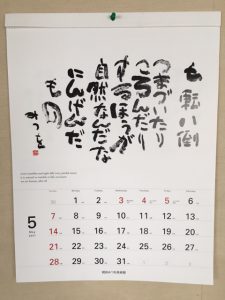 七転八倒
つまづいたり
ころんだり
するほうが
自然なんだな
にんげんだ
もの
みつを
5
May
2017
Sunday Monday Tuesday Wednesday Thursday Friday Saturday
1 2 3 4 5 6
7 8 9 10 11 12 13
14 15 16 17 18 19 20
21 22 23 24 25 26 27
28 29 30 31
相田みつを美術館